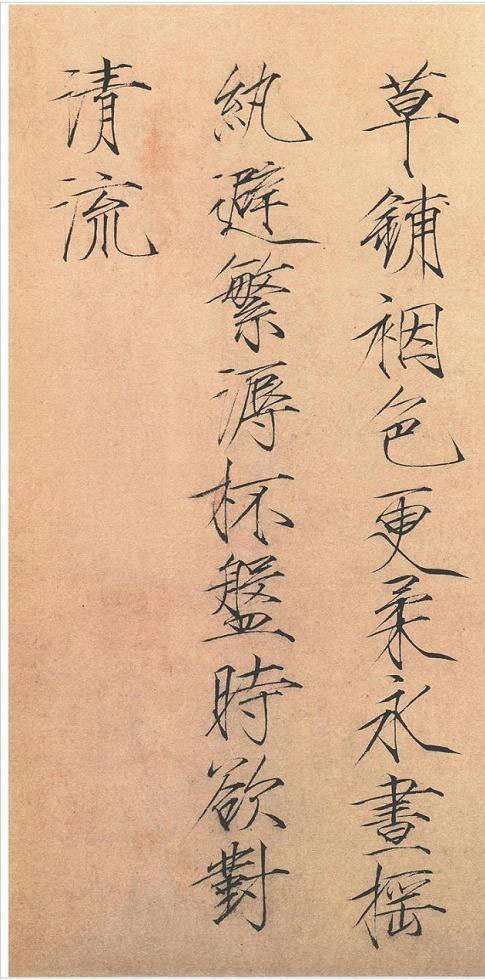 草鋪裀色更柔永晝揺
紈避繁溽杯盤時欲對
清流